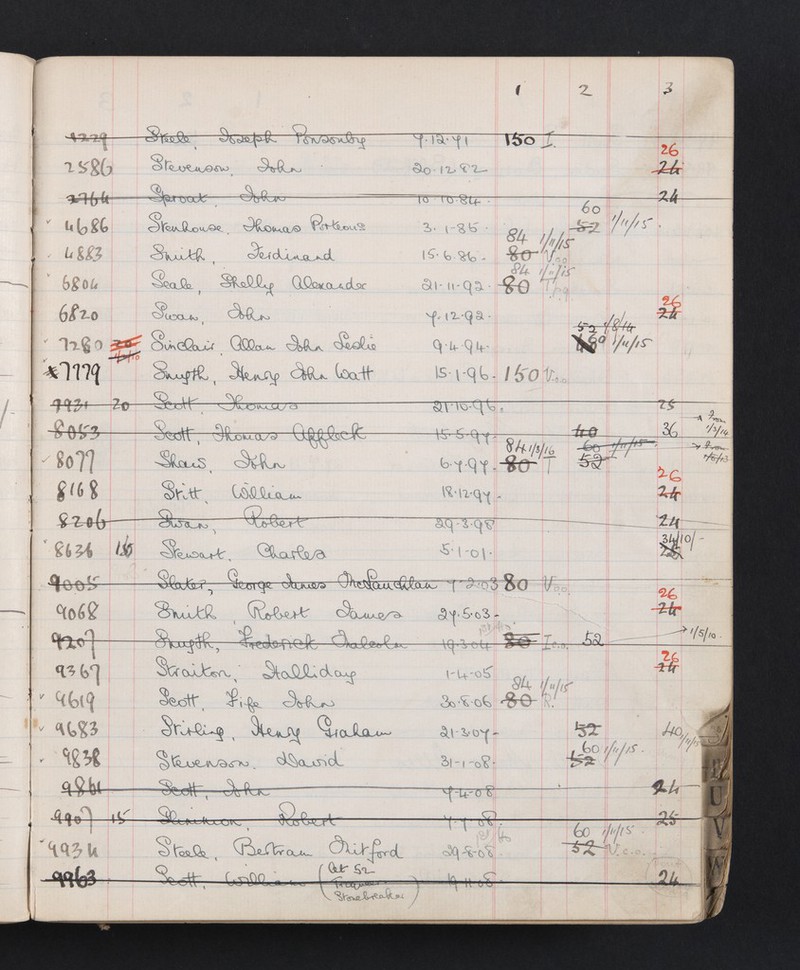 1 2 3
4229 Steele, Joseph Ponsonby 7.12.71 150 I.
26
2586 Stevenson, John 20.12.82 24
2764 Sproat, John 10.10.84 24
60
4686 Stenhouse, Thomas Porteous 3.1.85 52 1/11/15
84 1/11/15
4883 Smith, Ferdinand 15.6.86 80
84 1/11/15
6804 Seale, Shelly Alexander 21.11.92 80
26
6820 Swan, John 7.12.92 24
52 1/8/14
7280 20 Sinclair, Allan John Leslie 9.4.94 60 1/11/15
1/1/10
7779 Smyth, Henry John Watt 15.1.96 150
7931 20 Scott Thomas 21.10.96 25
8053 Scott, Thomas Affleck 15.5.97 40 36 1/3/14
84 1/3/16 60 1/11/15
8077 Shaw, John 6.7.97 80 52
26
8168 Stitt, William 18.12.97 24
8206 Swan, Robert 29.3.98 24
34/10/-
8636 Stewart, Charles 5.1.01 25
9005 Slater, George James McLauchlan 7.2.03 80
26
9068 Smith, Robert James 27.5.03 24
9207 Smyth, Frederick Malcolm 19.3.04 80 I.c.o. 52 1/5/10
26
9367 Straiton, Halliday 1.4.05 24
84 1/11/15
9619 Scott, Fife John 30.8.06 80 R.
9683 Stirling, Henry Graham 21.3.07 52 40
60 1/11/15
9838 Stevenson, David 31.1.08 52
9861 Scott, John 7.4.08 24
9907 15 Robert 7.7.08 25
60 1/11/15
9934 Steele, Bertram Mitford 29.8.08 52 V.c.o.
9963 Scott, William (Cat 52 19.11.08 24
Stonebreaker)
U
V
W